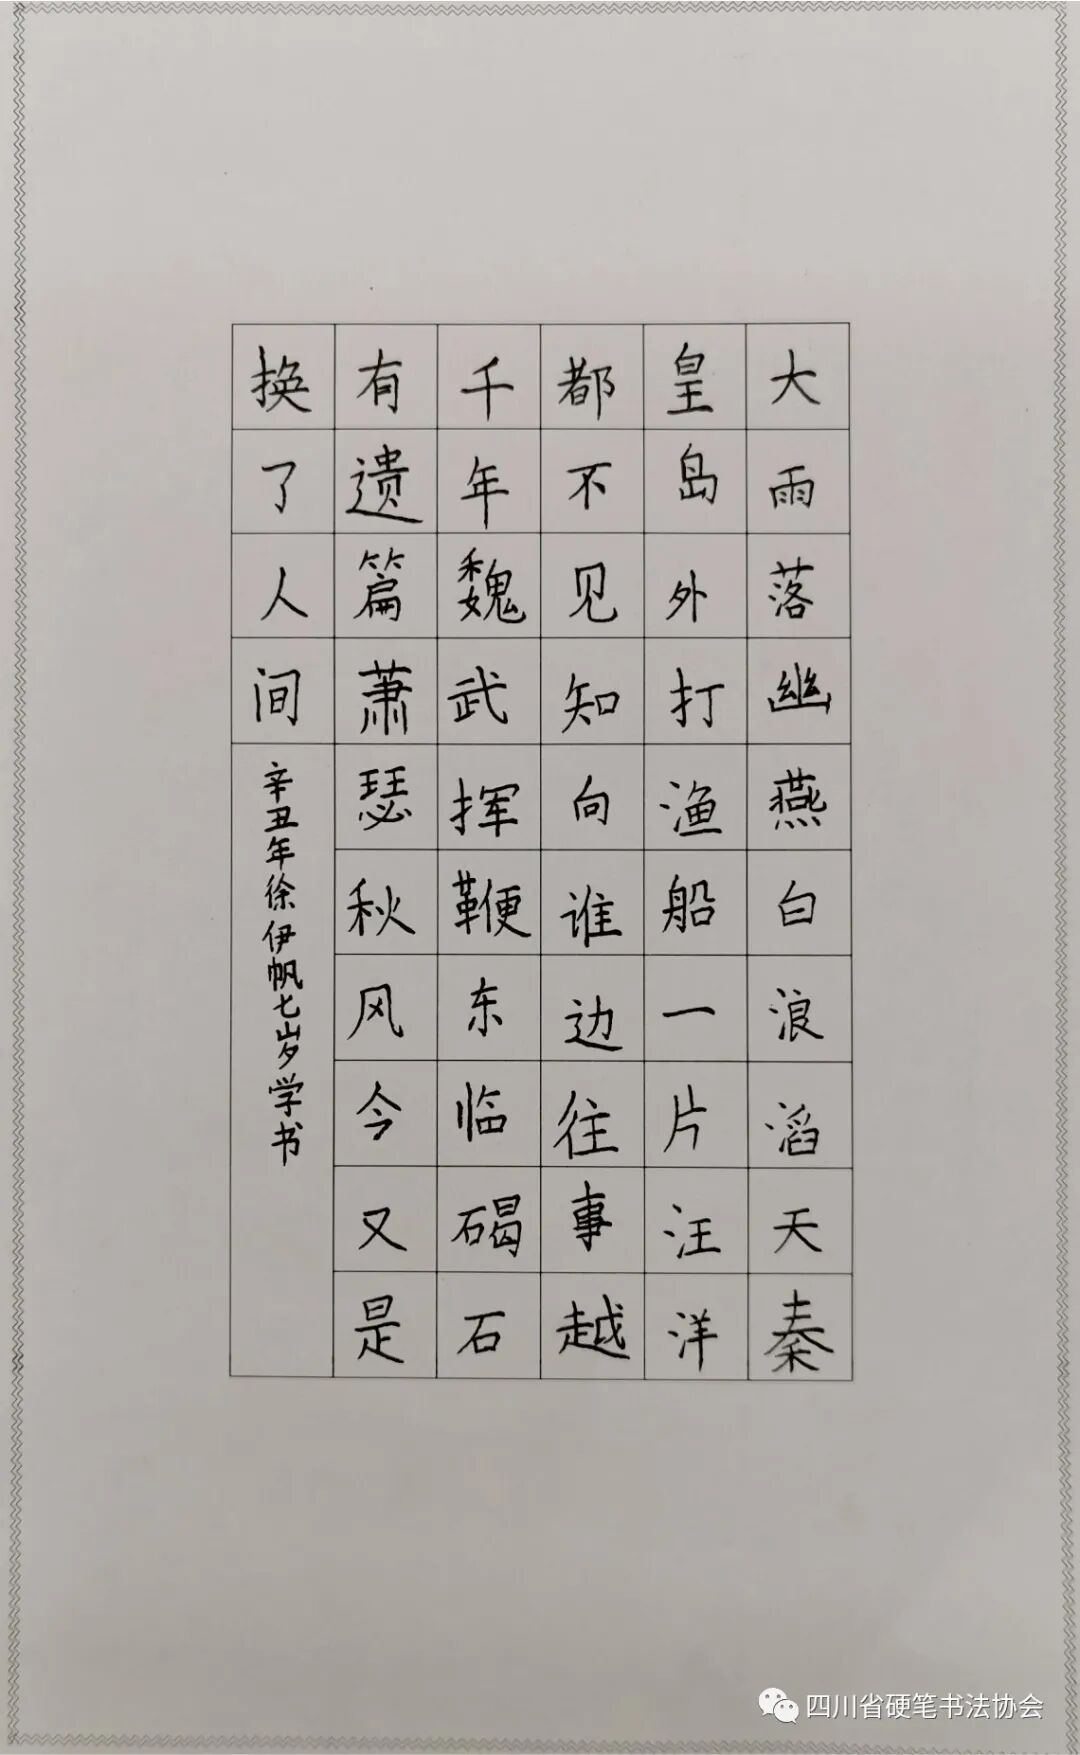 大雨落幽燕白浪滔天秦
皇岛外打渔船一片汪洋
都不见知向谁边往事越
千年魏武挥鞭东临碣石
有遗篇萧瑟秋风今又是
换了人间
辛丑年徐伊帆七岁学书
四川省硬笔书法协会